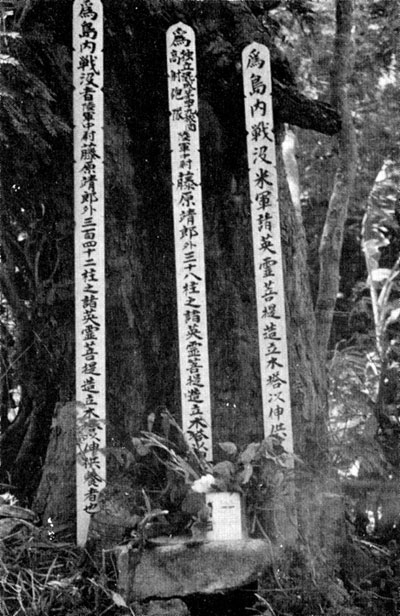 爲島内戦没米軍諸英霊菩提造立木塔以伸供
爲
独立混成第
高射砲隊
陸軍
藤原靖郎外三十八柱之諸英霊菩提造立木塔以
爲島内戦没者陸軍藤原靖郎外三百四十二柱之諸英霊菩提造立木以伸供養者也